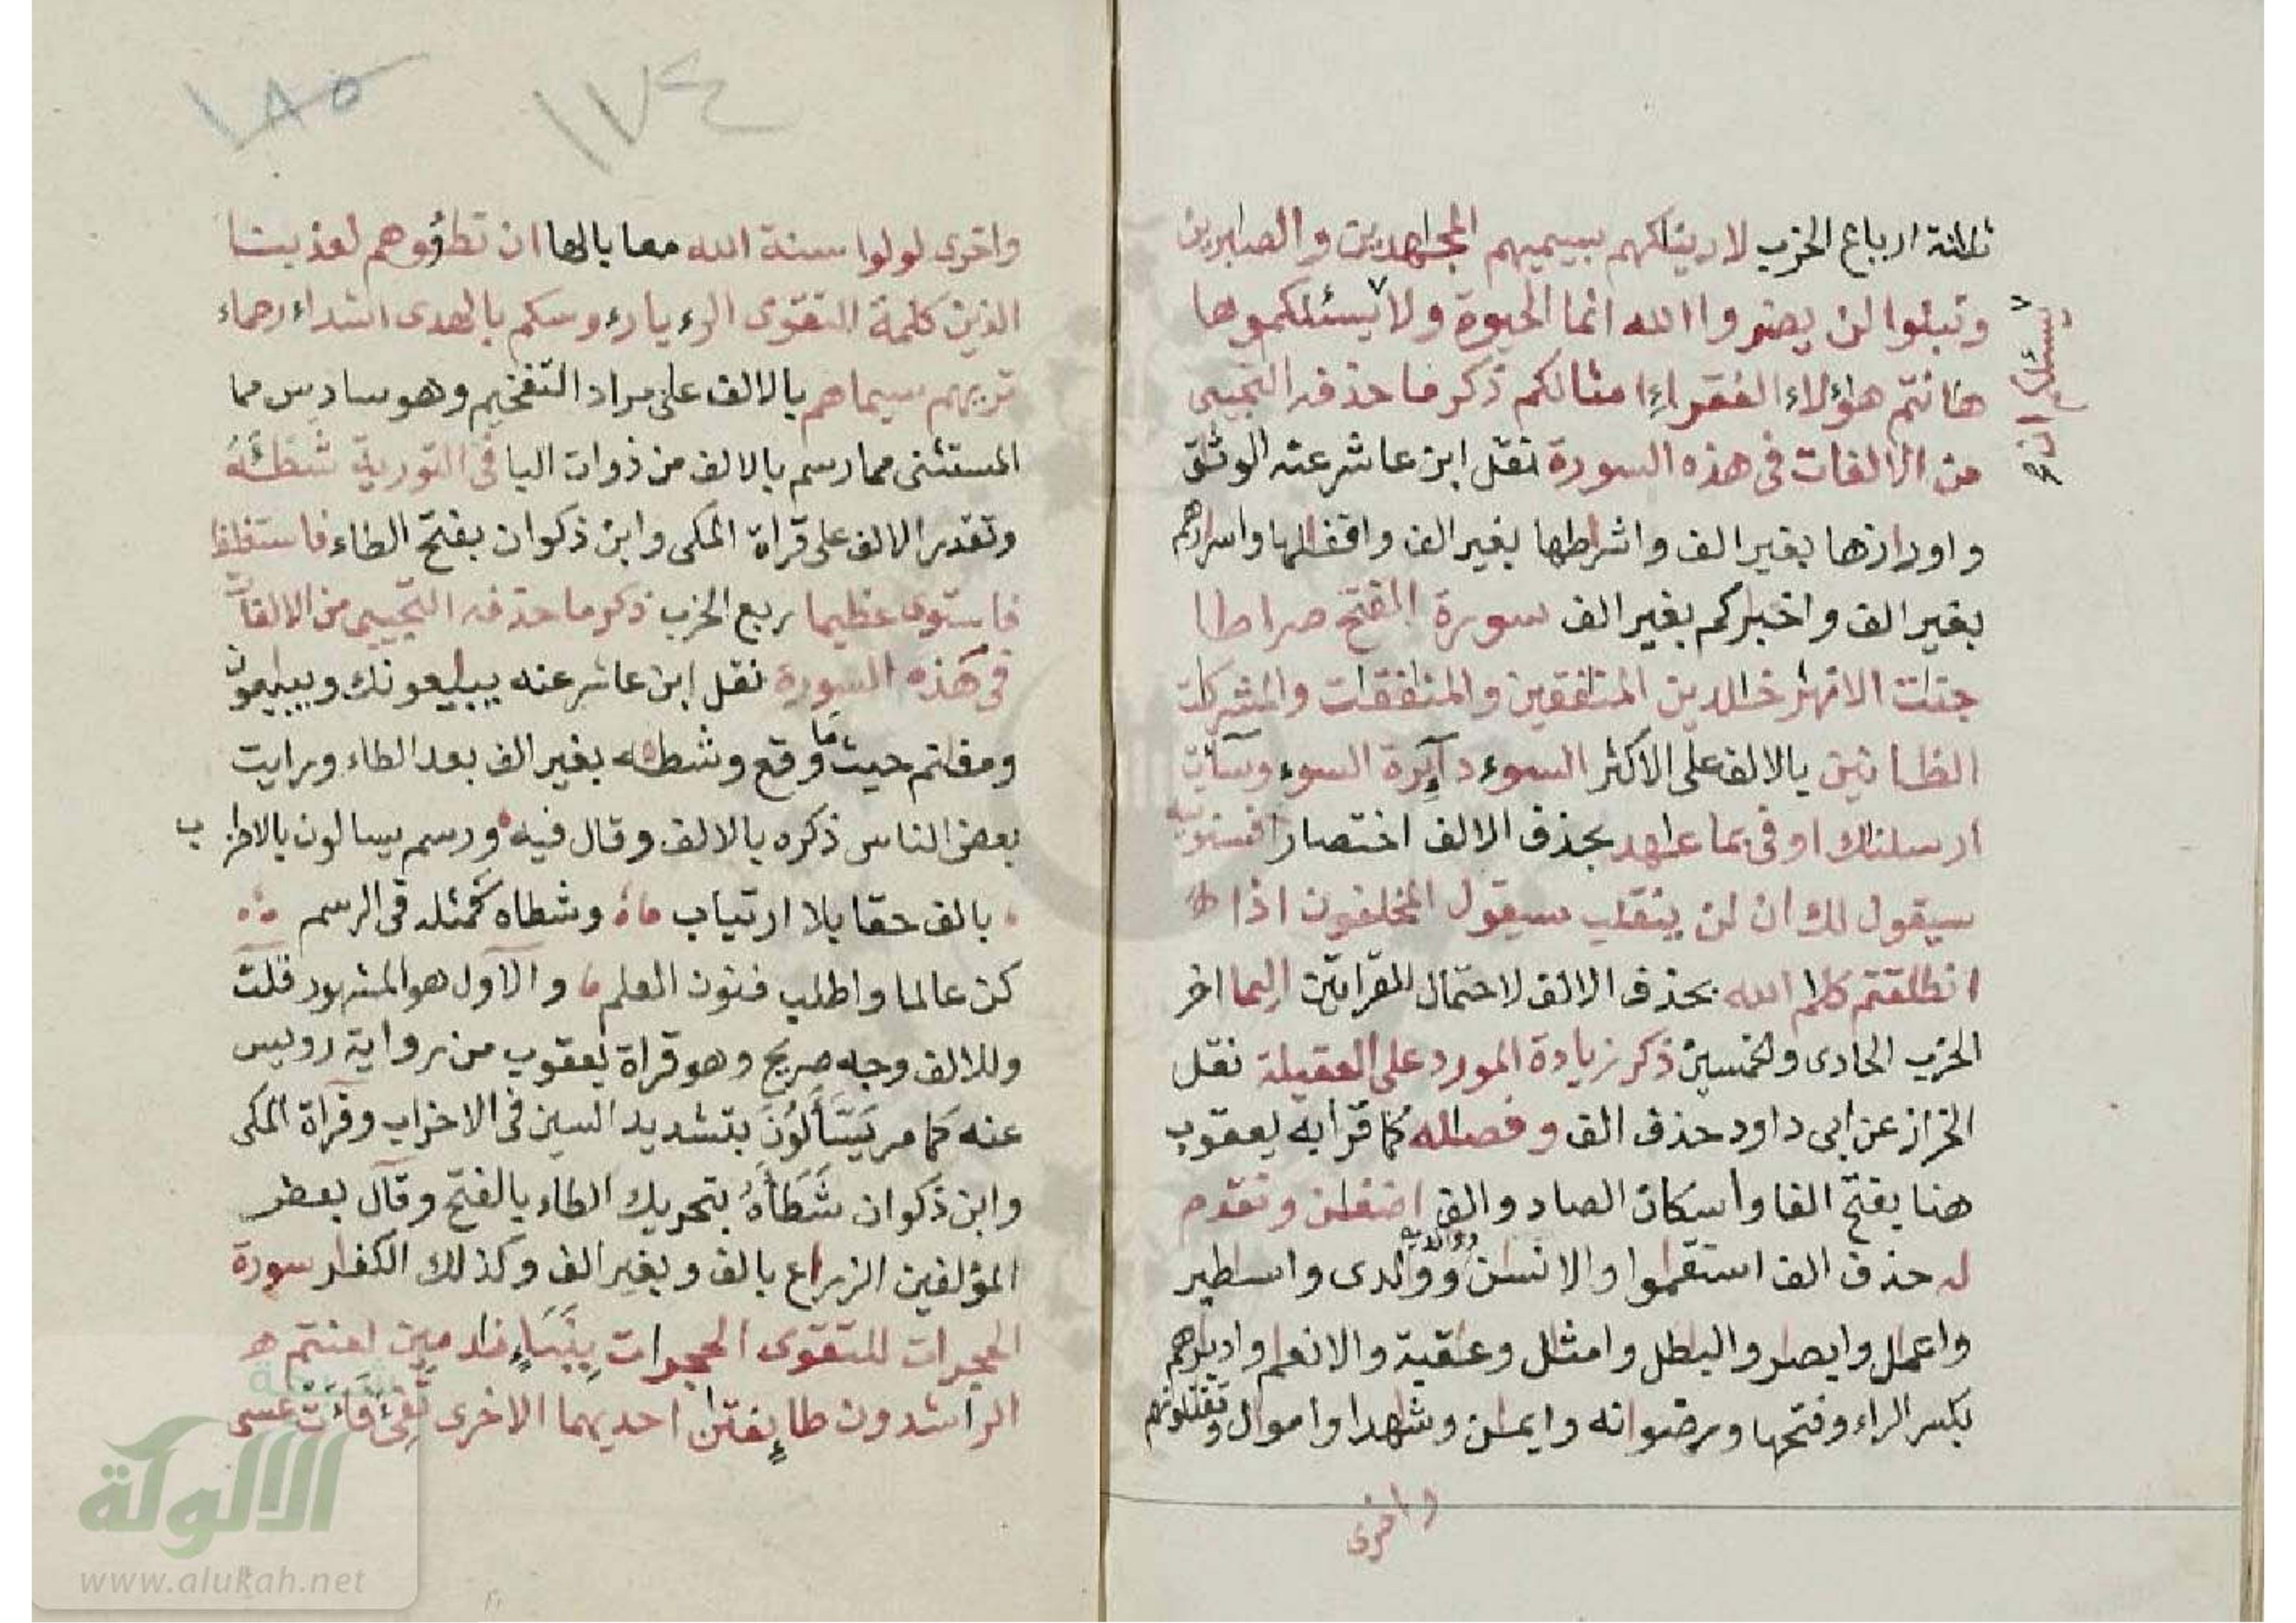 ثلاثة ارباع الحزب لارينٰكهم بسيميهم المجٰهدين والصٰبرين
وتبلوا لن يضروا الله انما الحيوة ولا يسئلكموها
يسئلكم ان
هٰانتم هٰؤلاء الفقراء امثالكم ذكر ما حذفه التجيبى
من الالفات فى هذه السورة نقل ابن عاشر عنه الوثٰق
واوزارها بغير الف واشراطها بغير الف واقفٰلها واسرارهم
بغير الف واخبٰركم بغير الف سورة الفتح صراطا
جنٰت الانهٰر خٰلدين المنٰفقين والمنٰفقٰت والمشركٰت
الظانين بالالف على الاكثر السوء دآئرة السوء وسآئت
ارسلنٰك اوفى بما عٰهد بحذف الالف اختصارا فسنؤتيه
سيقول لك ان لن ينقلب سيقول المخلفون اذا
انطلقتم كلٰم الله بحذف الالف لاحتمال القراءتين اليما اخر
الحزب الحادى والخمسين ذكر زيادة المورد على العقيلة نقل
الخراز عن ابى داود حذف الف وفصٰله كما قرا به يعقوب
هنا بفتح الفا واسكان الصاد والف اضغٰن وتقدم
له حذف الف استقٰموا والانسٰن ووٰلدى واسٰطير
بوٰلديه
واعمٰل وابصٰر والبٰطل وامثٰل وعٰقبة والانعٰم وادبٰرهم
بكسر الراء وفتحها ورضوانه وايمٰن وشٰهدا واموال وتقٰتلونهم
واخرى
١٧٤
١٨٥
واخرى لو لوا سنة الله معا بالها ان تطؤوهم لعذبنا
الذين كلمة التقوى الرءيا رءوسكم بالهدى اشداء رحماء
تريهم سيماهم بالالف على مراد التفخيم وهو سادس مما
المستثنى مما رسم بالالف من ذوات اليا فى التورية شطـٔه
وتقدير الالف على قراة المكى وابن ذكوان بفتح الطاء فاستغلظ
فاستوى عظيما ربع الحزب ذكر ما حذفه التجيبى من الالفات
فى هذه السورة نقل ابن عاشر عنه يبٰيعونك ويبٰيعون
ومغٰنم حيث ما وقع وشطـٔه بغير الف بعد الطاء ورايت
بعض الناس ذكره بالالف وقال فيه ورسم يسالون بالاحزاب
بالف حقا بلا ارتياب وشطاه كمثله فى الرسم
كن عالما واطلب فنون العلم والاول هو المشهور قلت
وللالف وجه صريح وهو قراة يعقوب من رواية رويس
عنه كما مر يَسَّآءَلُونَ بتشديد السين فى الاحزاب وقراة المكى
وابن ذكوان شَطَأَهُ بتحريك الطاء بالفتح وقال بعض
المؤلفين الزراع بالف وبغير الف وكذلك الكفار سورة
الحجرات للتقوى الحجرات بِنَبَإٍ نٰدمين لعنتم
الراشدون طائفتٰن احديهما الاخرى تفىء فاءت عسى
الألوكة
www.alukah.net